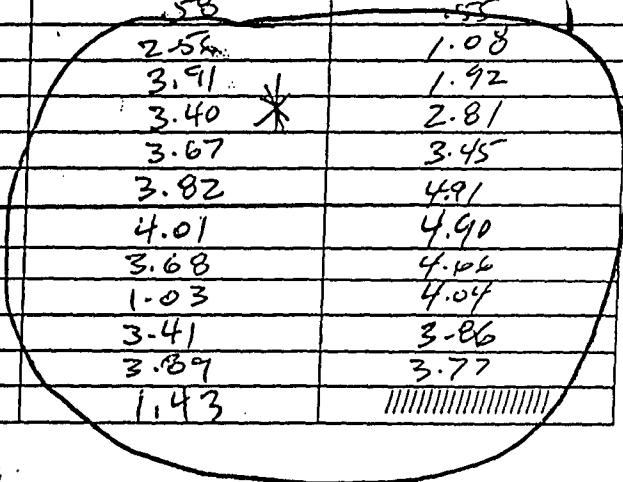 .58 .55
2.54 1.08
3.91 1.92
3.40 * 2.81
3.67 3.45
3.82 4.91
4.01 4.90
3.68 4.66
1.03 4.04
3.41 3.86
3.89 3.77
1.43 ////////////////